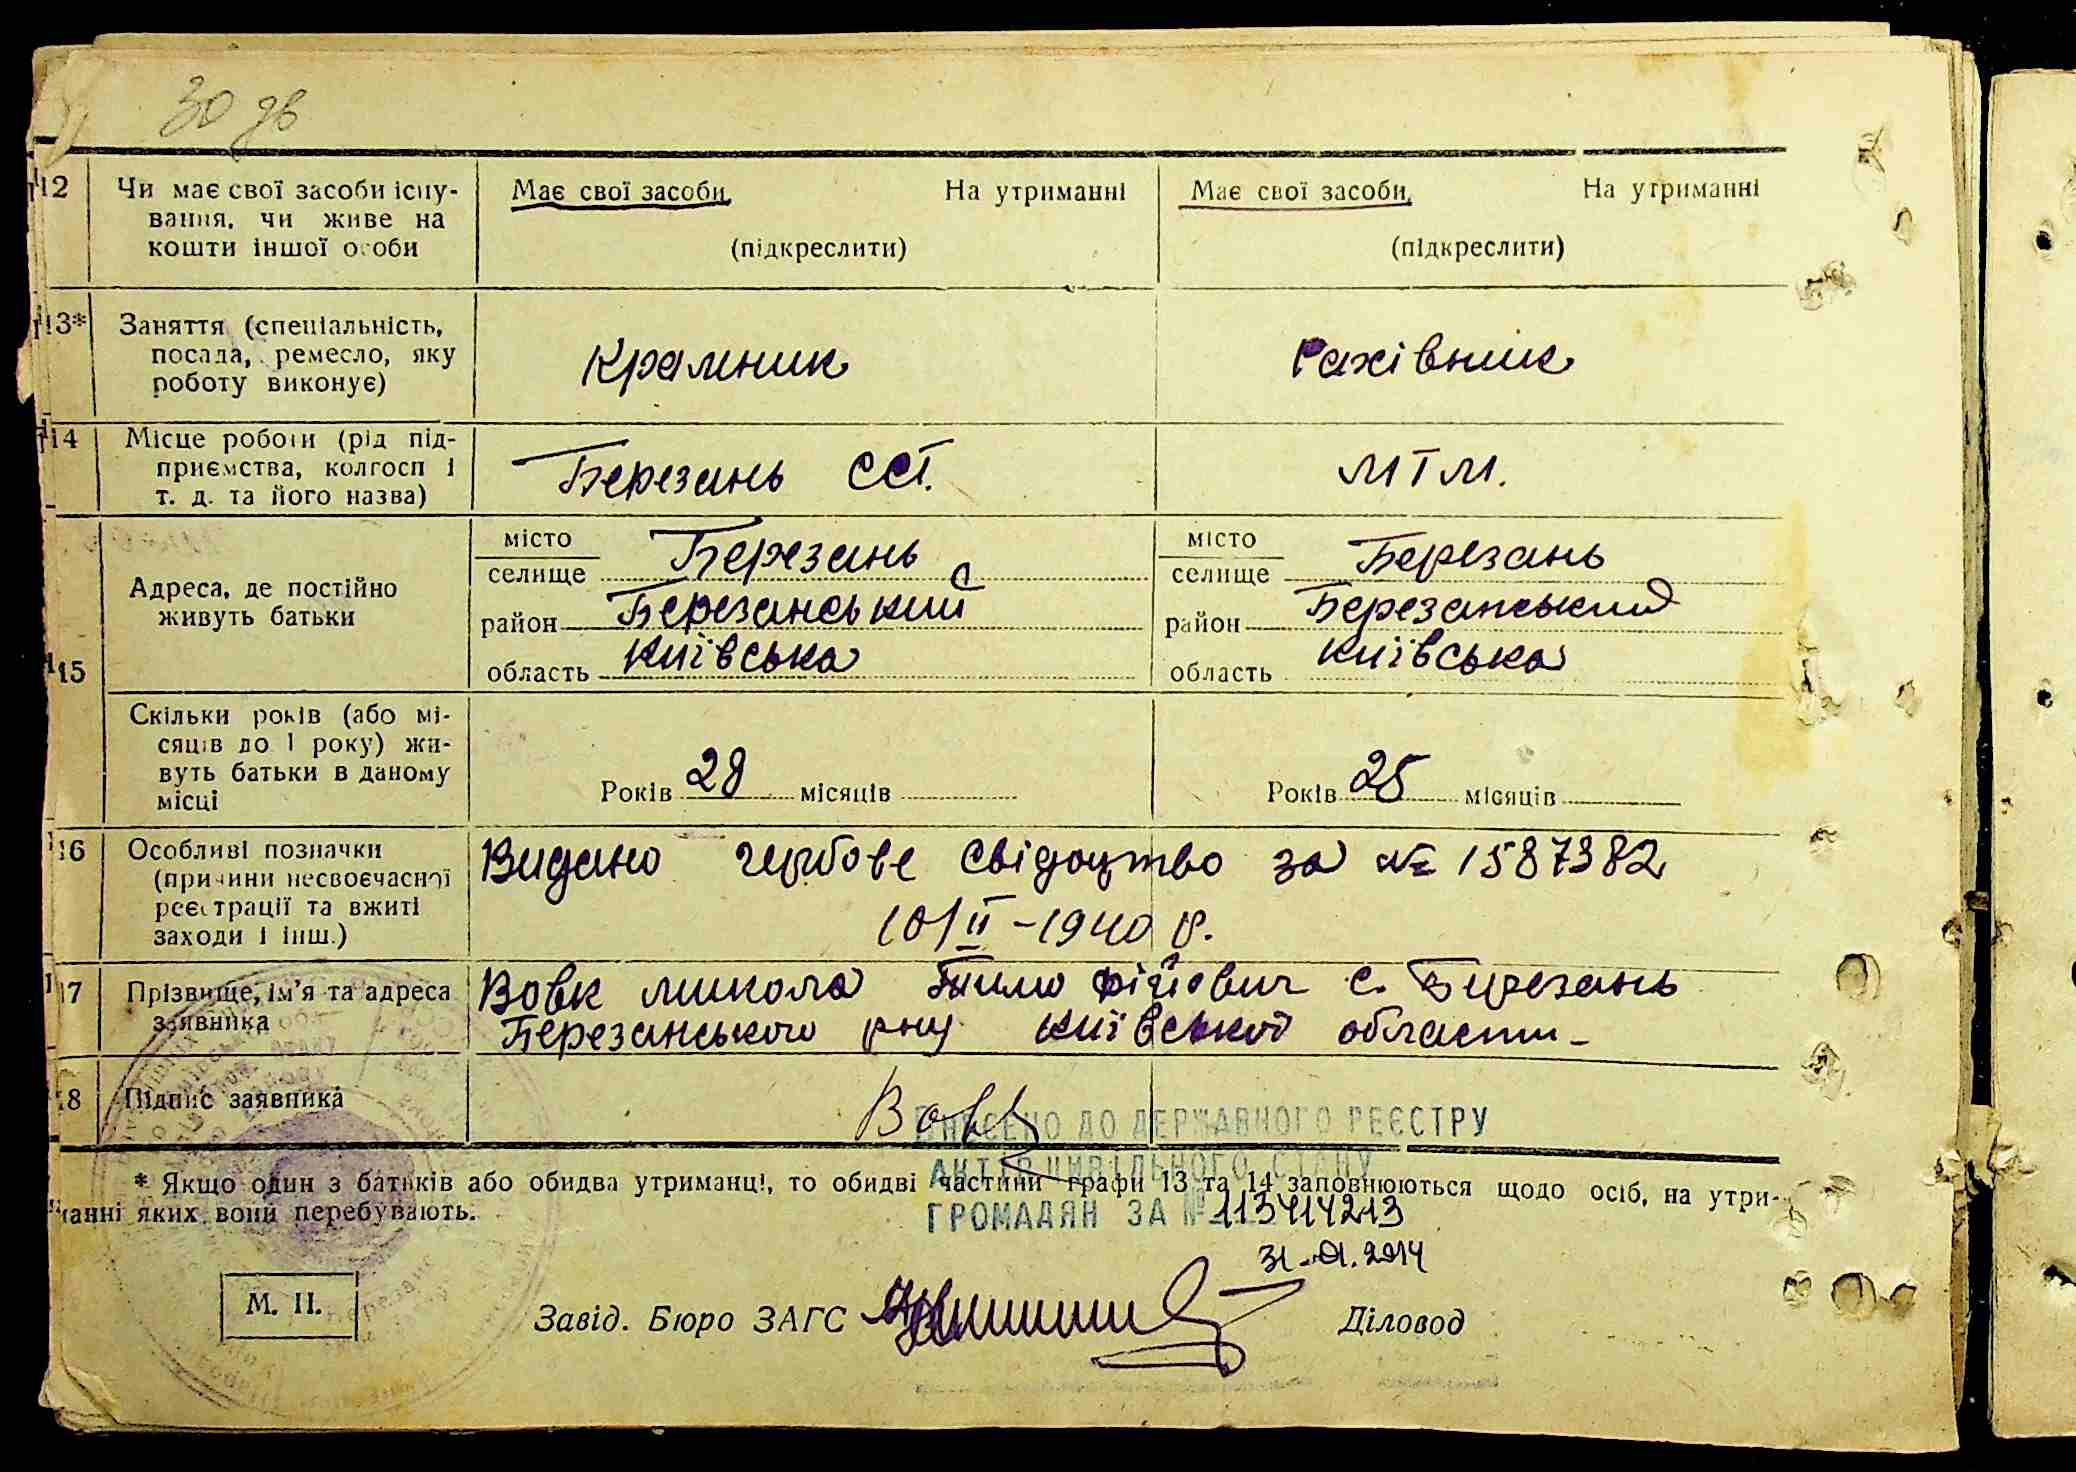 30 зв
12 Чи має свої засоби існу- Має свої засоби, На утриманні Має свої засоби, На утриманні
вання, чи живе на
кошти іншої особи (підкреслити) (підкреслити)
13* Заняття (спеціальність,
посада, ремесло, яку Крамник Рахівник
роботу виконує)
14 Місце роботи (рід під-
приємства, колгосп і Березань ССТ. МТМ.
т. д. та його назва)
місто Березань місто Березань
селище селище
15 Адреса, де постійно
живуть батьки район Березанський район Березанський
область Київська область Київська
Скільки років (або мі-
сяців до 1 року) жи-
вуть батьки в даному Років 28 місяців Років 25 місяців
місці
16 Особливі позначки Видано гербове свідоцтво за № 1587382
(причини несвоєчасної
реєстрації та вжиті 10/II-1940 р.
заходи і інш.)
17 Прізвище, ім'я та адреса Вовк Микола Тимофійович с. Березань
заявника Березанського рну Київської области-
18 Підпис заявника Вовк
ВНЕСЕНО ДО ДЕРЖАВНОГО РЕЄСТРУ
АКТІВ ЦИВІЛЬНОГО СТАНУ
* Якщо один з батьків або обидва утриманці, то обидві частини графи 13 та 14 заповнюються щодо осіб, на утри-
манні яких вони перебувають.
ГРОМАДЯН ЗА № 113414213
31.01.2014
М. П. Завід. Бюро ЗАГС Діловод